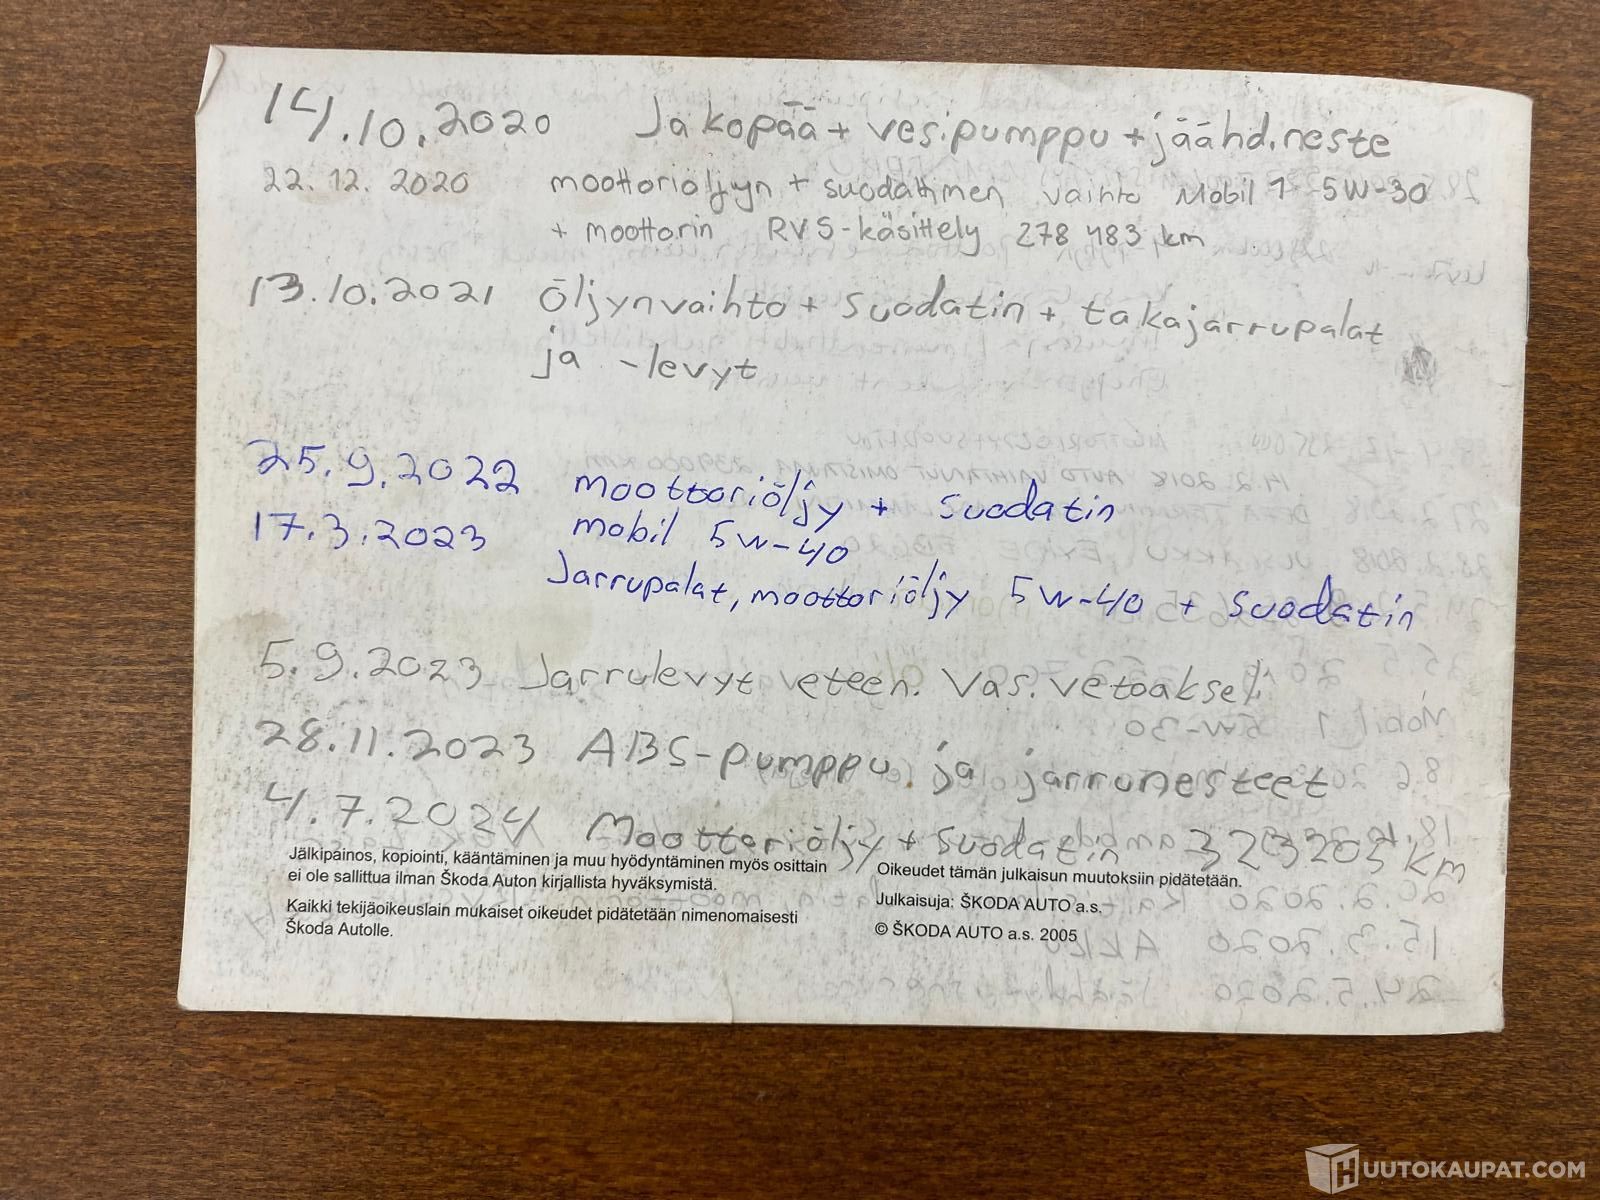 14.10.2020 Jakopää + vesipumppu + jäähd.neste
22.12.2020 moottoriöljyn + suodattimen vaihto Mobil 1 5W-30
+ moottorin RVS-käsittely 278 483 km
13.10.2021 Öljynvaihto + suodatin + takajarrupalat
ja -levyt
25.9.2022 moottoriöljy + suodatin
mobil 5w-40
17.3.2023 Jarrupalat, moottoriöljy 5w-40 + suodatin
5.9.2023 Jarrulevyt eteen. Vas. vetoakseli
28.11.2023 ABS-pumppu ja jarrunesteet
4.7.2024 Moottoriöljy + suodatin 323203 km
Jälkipainos, kopiointi, kääntäminen ja muu hyödyntäminen myös osittain
ei ole sallittua ilman Škoda Auton kirjallista hyväksymistä.
Kaikki tekijäoikeuslain mukaiset oikeudet pidätetään nimenomaisesti
Škoda Autolle.
Oikeudet tämän julkaisun muutoksiin pidätetään.
Julkaisuja: ŠKODA AUTO a.s.
© ŠKODA AUTO a.s. 2005
HUUTOKAUPAT.COM